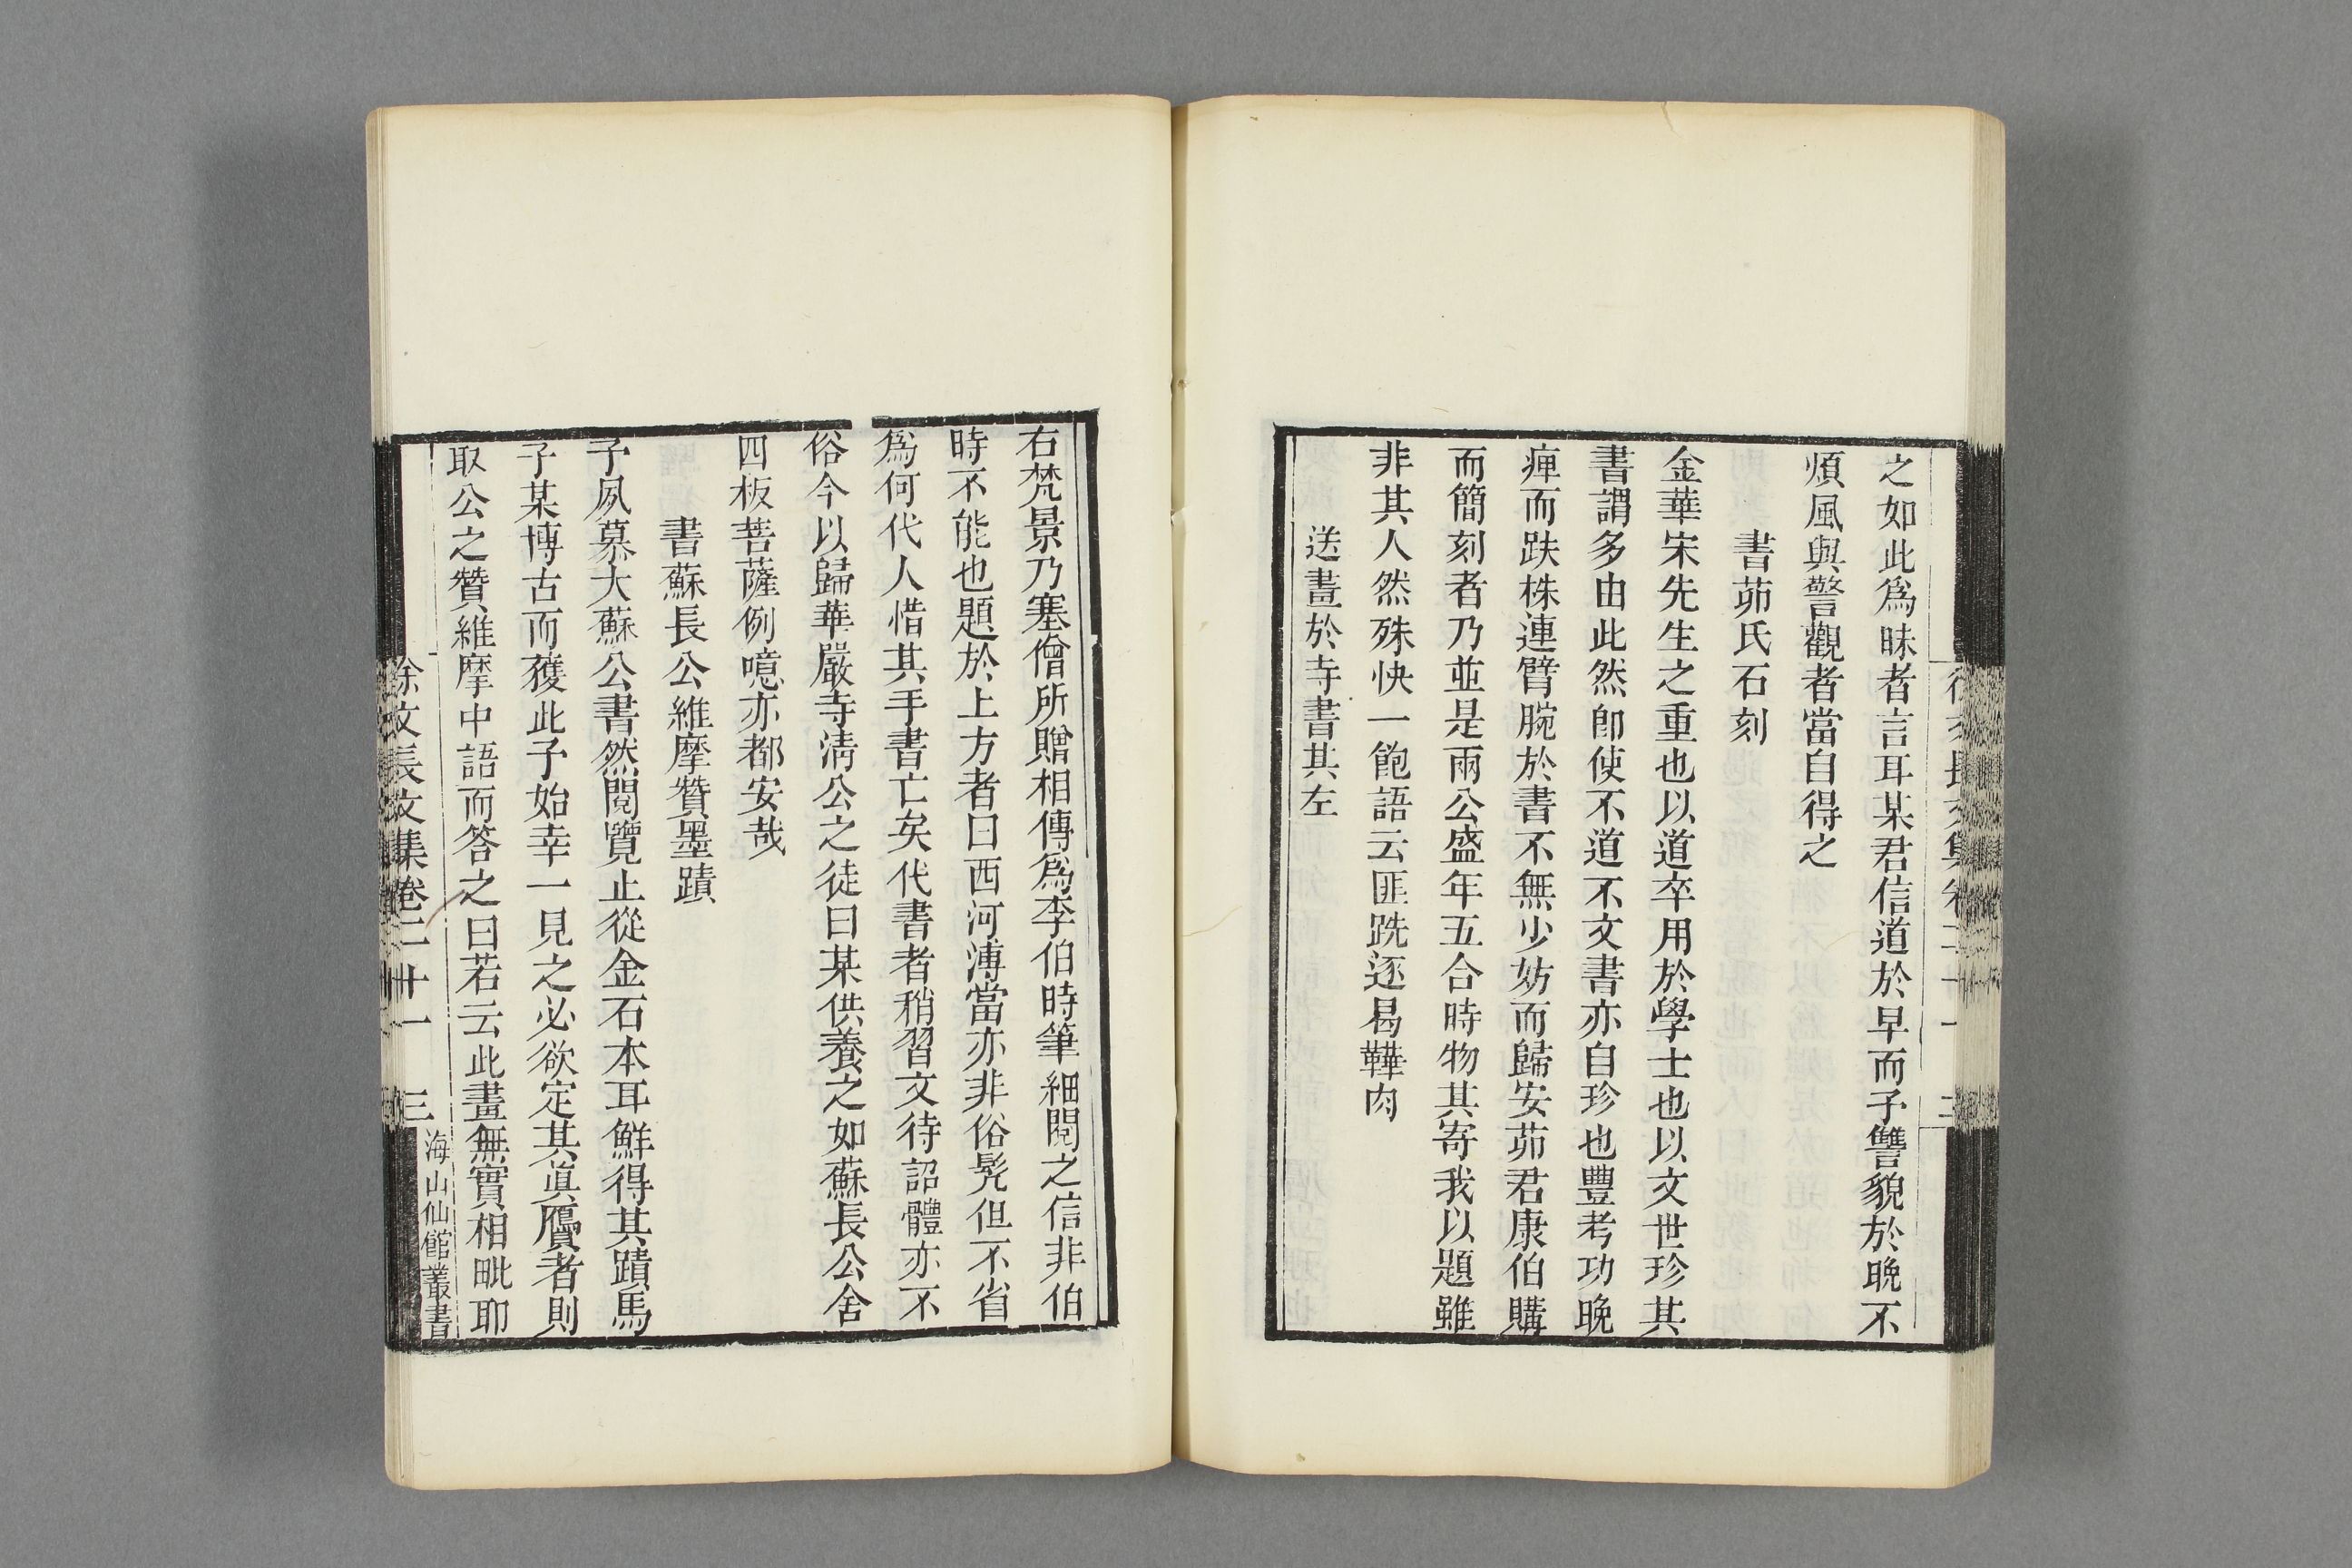 之如此爲昧者言耳某君信道於早而予讐貌於晚不
煩風與警觀者當自得之
書茆氏石刻
金華宋先生之重也以道卒用於學士也以文世珍其
書謂多由此然卽使不道不文書亦自珍也豐考功晚
痺而跌株連臂腕於書不無少妨而歸安茆君康伯購
而簡刻者乃並是兩公盛年五合時物其寄我以題雖
非其人然殊快一飽語云匪跣逐曷鞾肉
送畫於寺書其左
右梵景乃塞僧所贈相傳爲李伯時筆細閱之信非伯
時不能也題於上方者曰西河漙當亦非俗髠但不省
爲何代人惜其手書亡矣代書者稍習文待詔體亦不
俗今以歸華嚴寺淸公之徒曰某供養之如蘇長公舍
四板菩薩例噫亦都安哉
書蘇長公維摩贊墨蹟
予夙慕大蘇公書然閱覽止從金石本耳鮮得其蹟馬
子某博古而獲此予始幸一見之必欲定其眞贗者則
取公之贊維摩中語而答之曰若云此畫無實相毗耶
徐文長文集卷二十一 三
海山仙館叢書